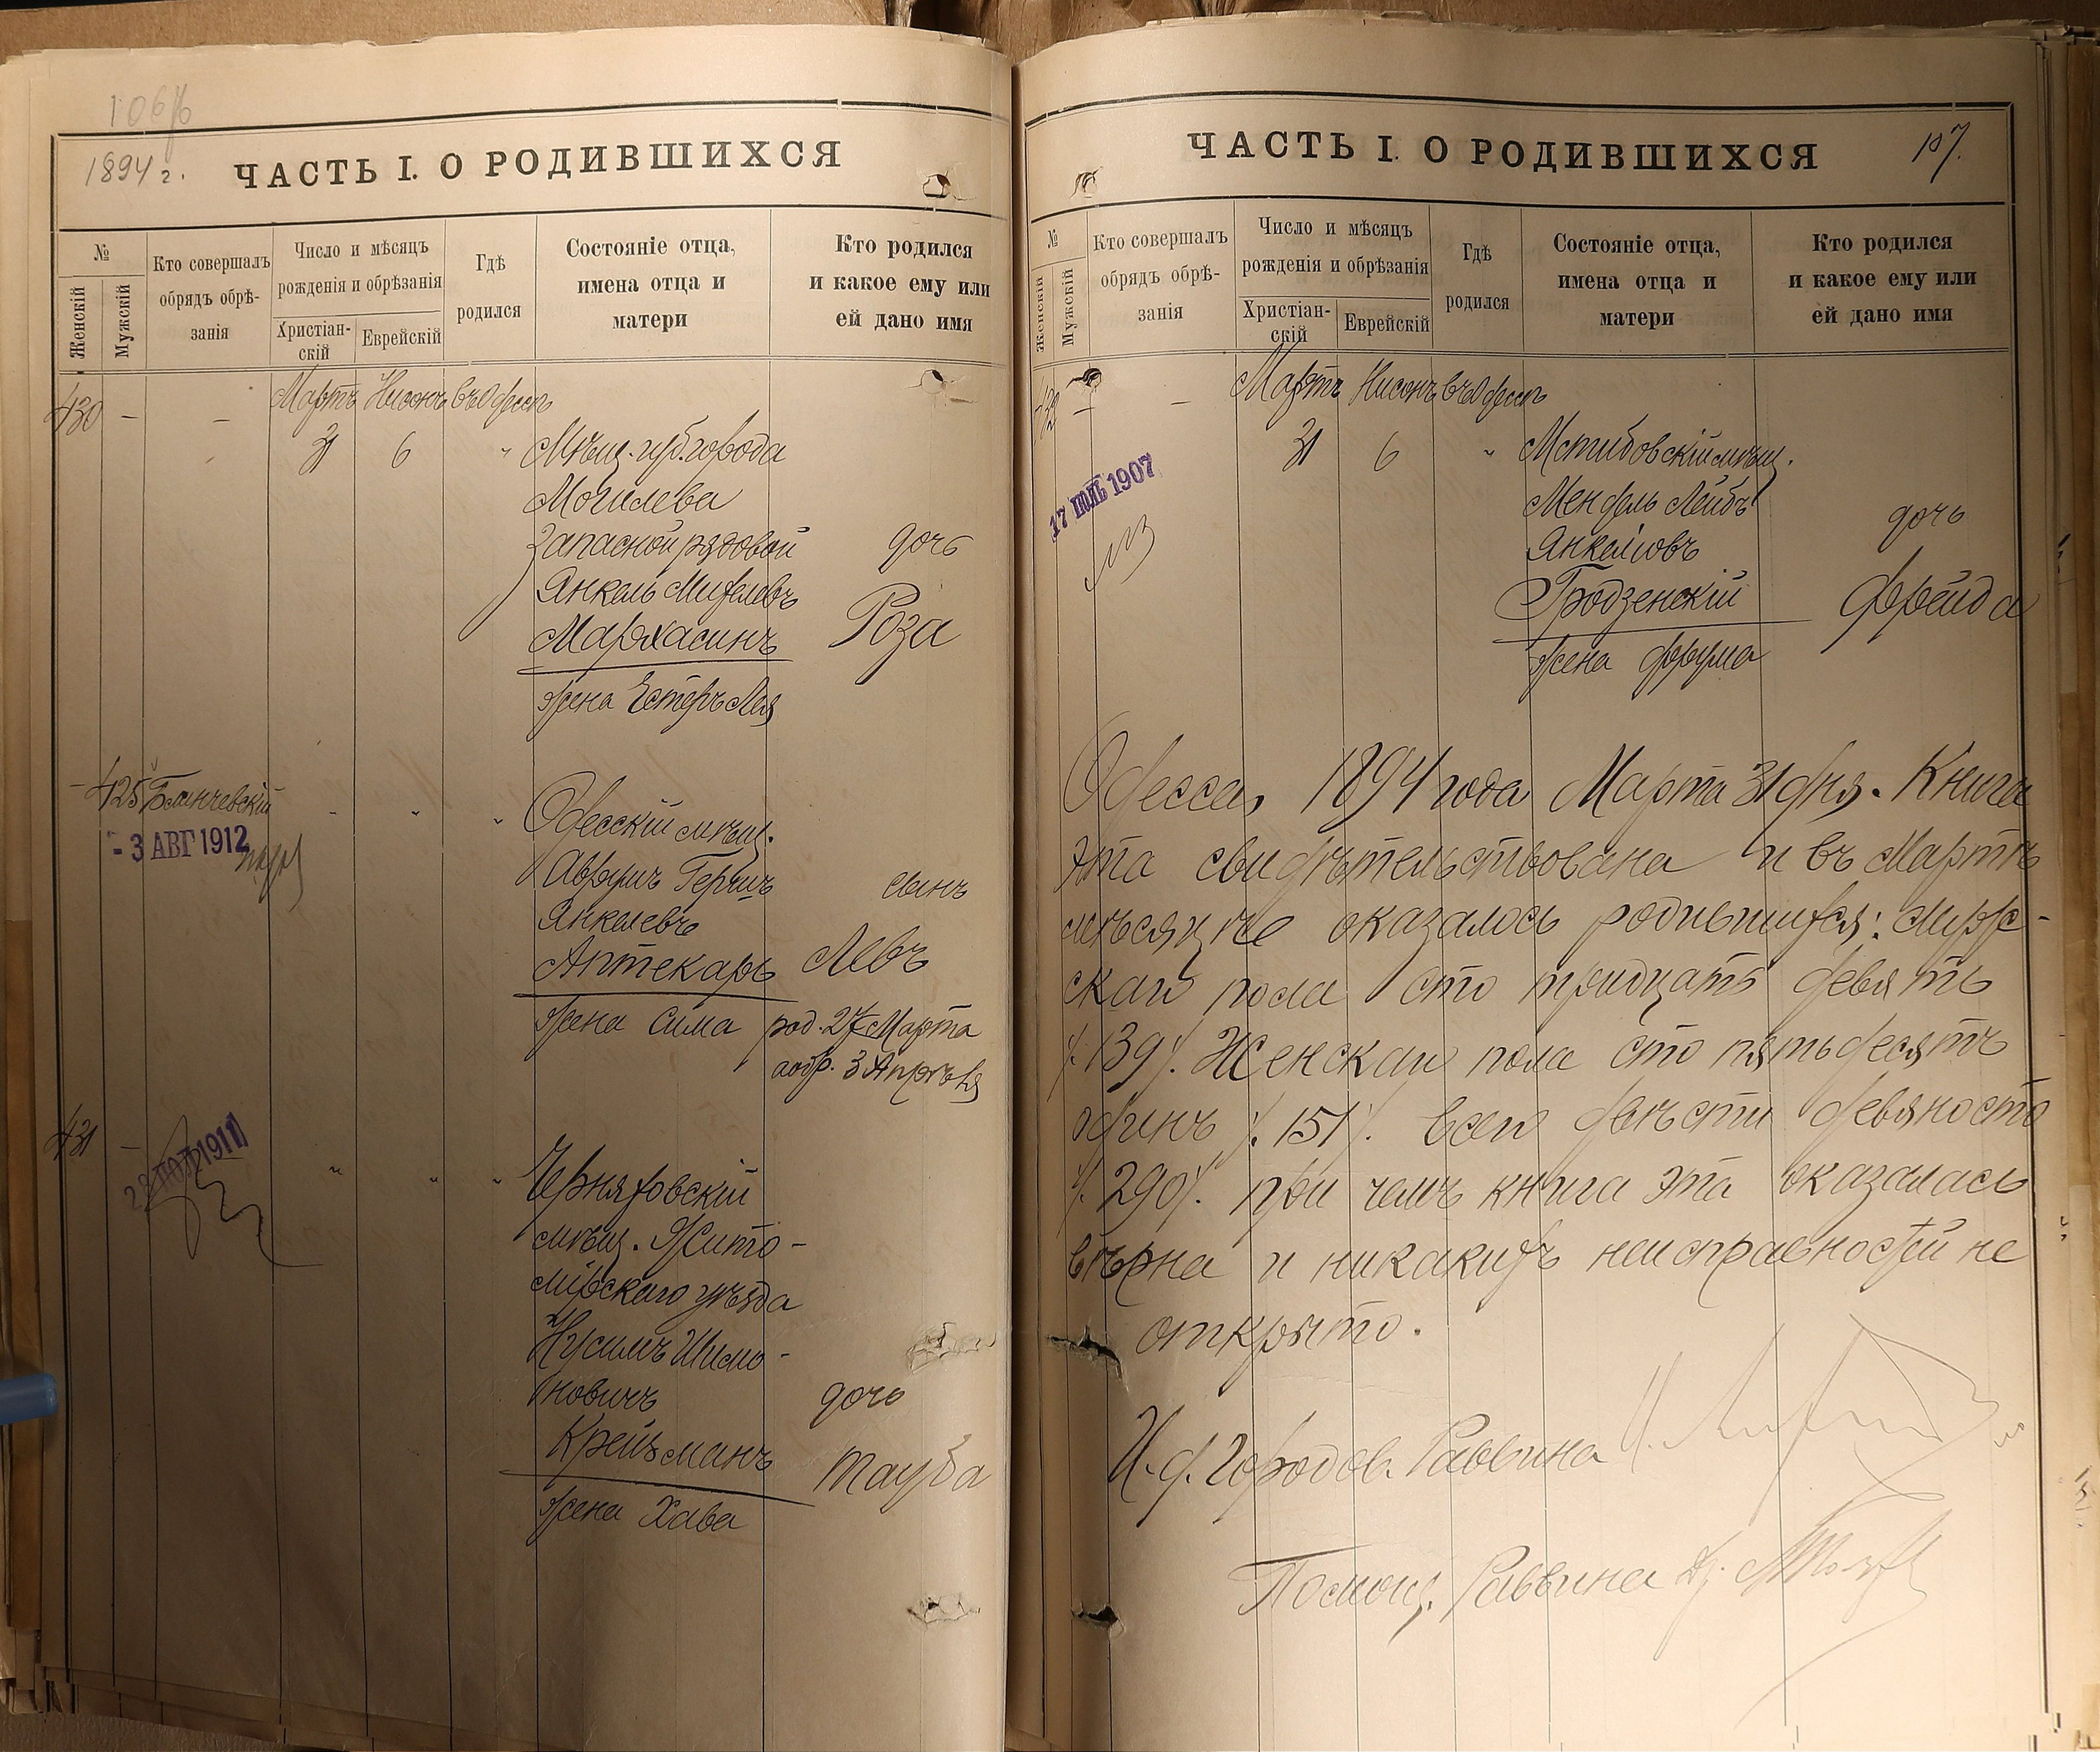 106/б
1894 г.
ЧАСТЬ I. О РОДИВШИХСЯ
№
Женскій
Мужскій
Кто совершалъ
обрядъ обрѣ-
занія
Число и мѣсяцъ
рожденія и обрѣзанія
Христіан-
скій
Еврейскій
Гдѣ
родился
Состояніе отца,
имена отца и
матери
Кто родился
и какое ему или
ей дано имя
430 – – Мартъ Нисонъ въ Одессѣ
31 6 " Мѣщ. губ. города
Могилева
Запасной рядовой дочь
Янкель
Мархасинъ Роза
жена Естеръ Лея
425
Одесскій мѣщ.
- 3 АВГ 1912
Аврумъ Гершъ сынъ
Янкелевъ
Аптекарь Левъ
жена Сима род. 27 Марта
обр. 3 Апрѣля
431 –
1911
Черняховскій
мѣщ. Жито-
мірскаго уѣзда
Нусимъ Шимо-
новичъ дочь
Крейзманъ Тауба
жена Хава
ЧАСТЬ I. О РОДИВШИХСЯ
107.
№
Женскій
Мужскій
Кто совершалъ
обрядъ обрѣ-
занія
Число и мѣсяцъ
рожденія и обрѣзанія
Христіан-
скій
Еврейскій
Гдѣ
родился
Состояніе отца,
имена отца и
матери
Кто родился
и какое ему или
ей дано имя
432 – – Мартъ Нисонъ въ Одессѣ
31 6 " Мстибовскій мѣщ.
17 1907
Мендель Лейбъ
Янкелювъ дочь
Гродзенскій Фрейда
жена Фрума
Одесса, 1894 года Марта 31 дня. Книга
эта свидѣтельствована и въ Мартѣ
мѣсяцѣ оказалось родившихся: муж-
скаго пола сто тридцать девять
/.139/. Женскаго пола сто пятьдесятъ
одинъ /.151/. всего двѣсти девяносто
/.290/. при чемъ книга эта оказалась
вѣрна и никакихъ неисправностей не
открыто.
И. д. Городов. Раввина
Помощ. Раввина